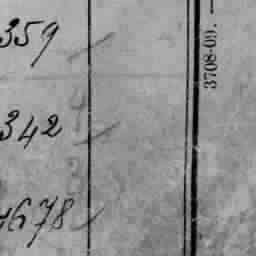 359
342
4678
3708-09.